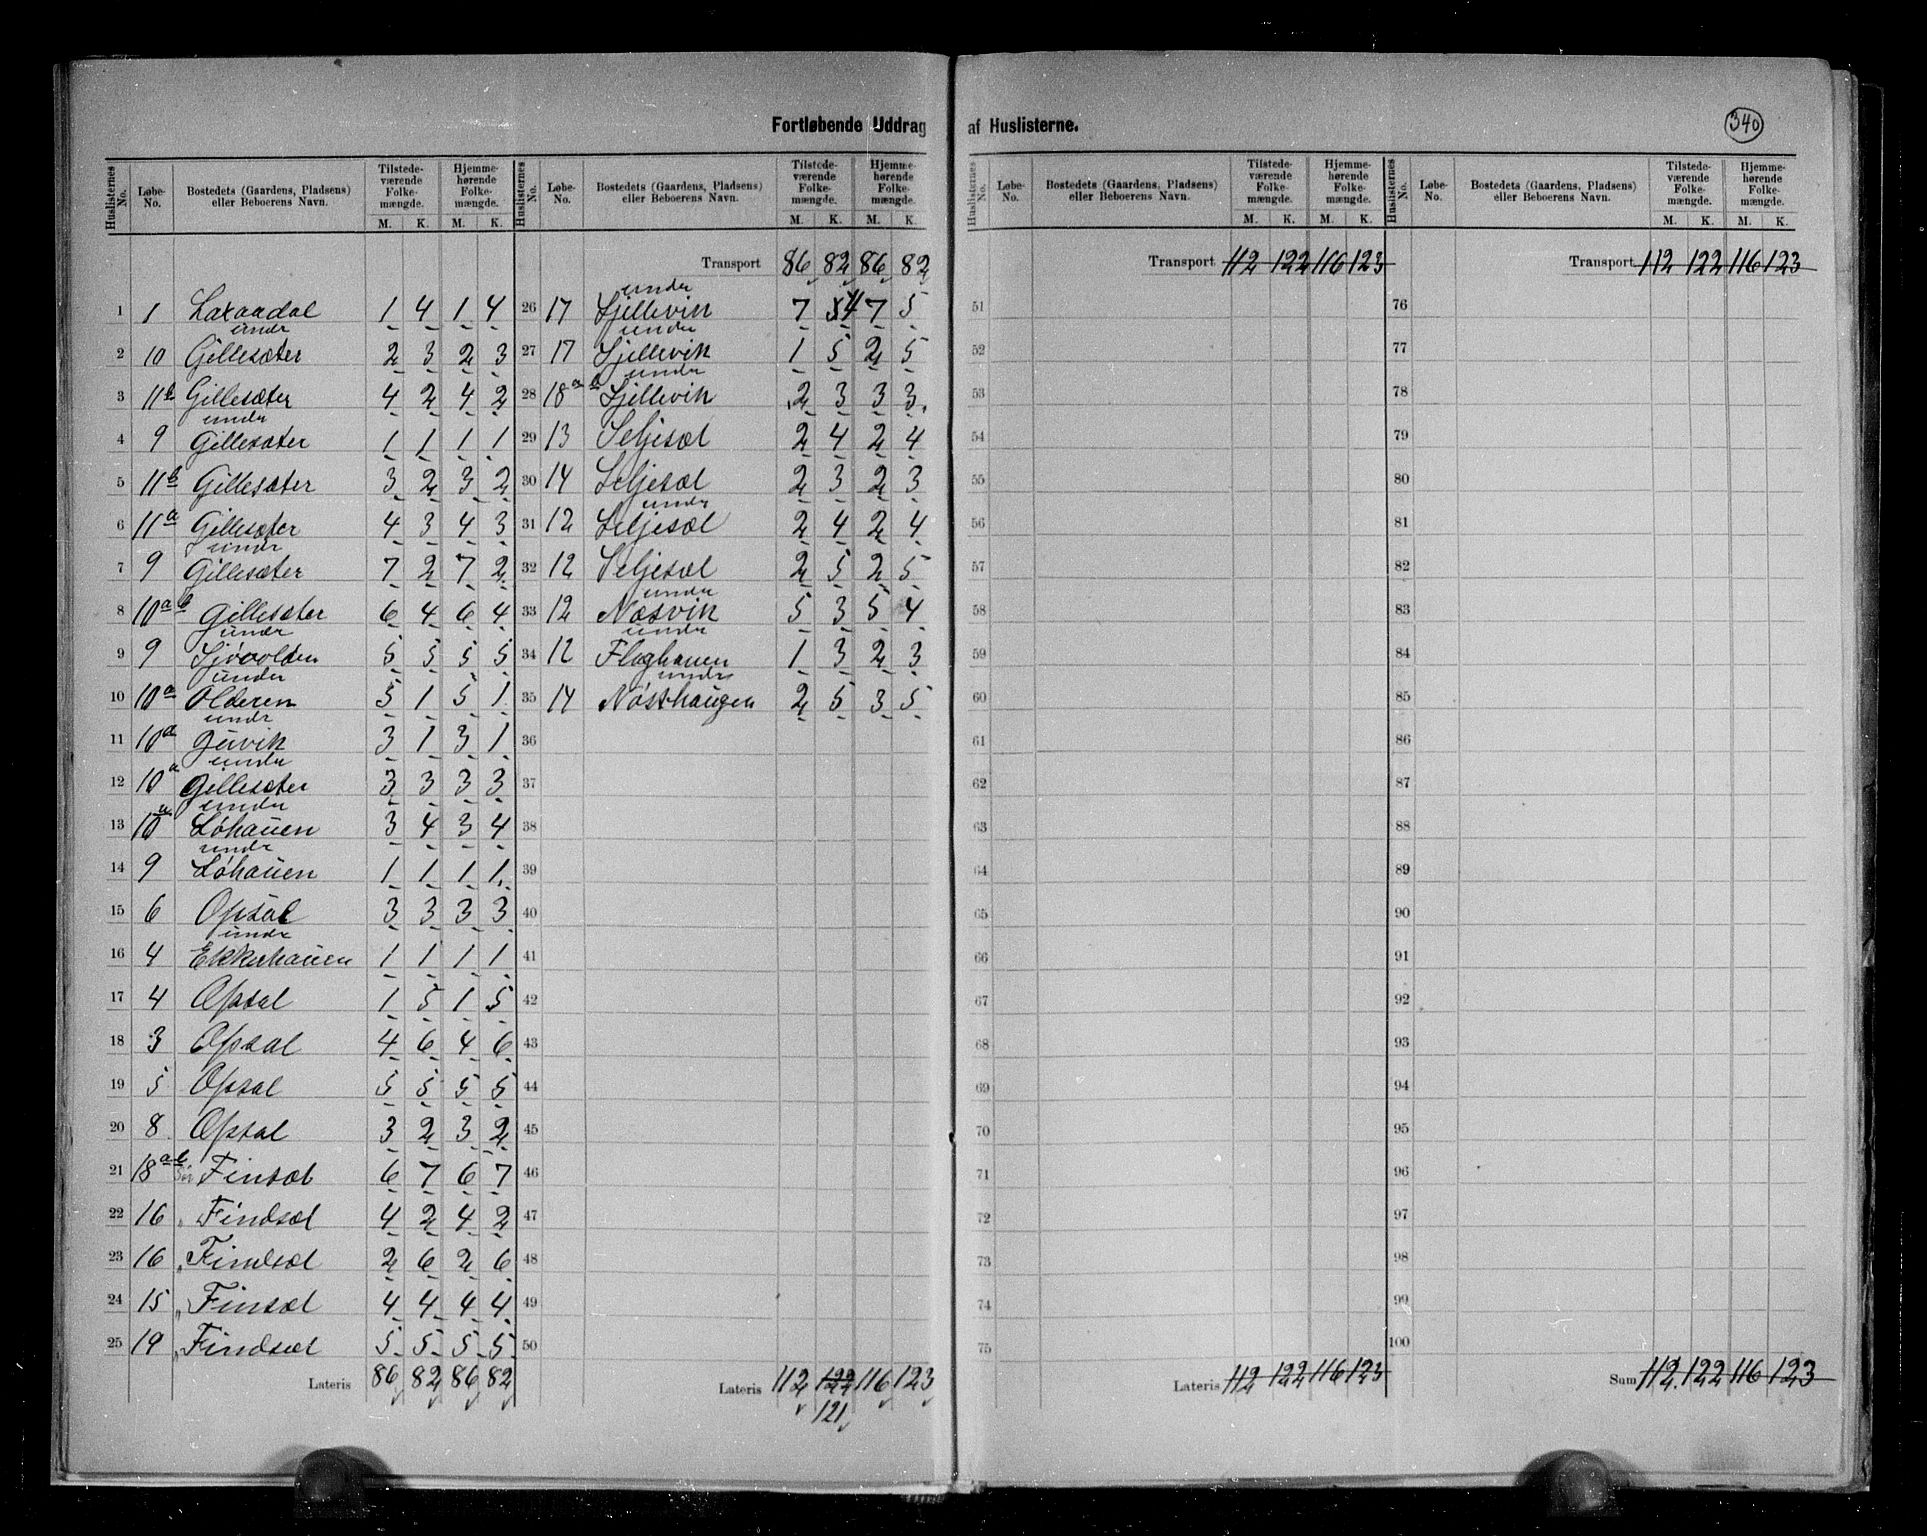 Fortløbende Uddrag af Huslisterne.
340
Huslisternes No. | Løbe-No. | Bostedets (Gaardens, Pladsens) eller Beboerens Navn. | Tilstedeværende Folkemængde. M. K. | Hjemmehørende Folkemængde. M. K.
1 1 Laxaadal 1 4 1 4
2 10 under Gillesæter 2 3 2 3
3 11b Gillesæter 4 2 4 2
4 9 under Gillesæter 1 1 1 1
5 11b Gillesæter 3 2 3 2
6 11a Gillesæter 4 3 4 3
7 9 under Gillesæter 7 2 7 2
8 10a b Gillesæter 6 4 6 4
9 9 under Sjøvolden 5 5 5 5
10 10a under Olderen 5 1 5 1
11 10a under Juvik 3 1 3 1
12 10a under Gillesæter 3 3 3 3
13 10a under Løhauen 3 4 3 4
14 9 under Løhauen 1 1 1 1
15 6 Opsal 3 3 3 3
16 4 under Ekkerhauen 1 1 1 1
17 4 Opsal 1 5 1 5
18 3 Opsal 4 6 4 6
19 5 Opsal 5 5 5 5
20 8 Opsal 3 2 3 2
21 18a b Finsæt 6 7 6 7
22 16 " Findsæt 4 2 4 2
23 16 " Findsæt 2 6 2 6
24 15 " Finsæt 4 4 4 4
25 19 " Findsæt 5 5 5 5
Lateris 86 82 86 82
Huslisternes No. | Løbe-No. | Bostedets (Gaardens, Pladsens) eller Beboerens Navn. | Tilstedeværende Folkemængde. M. K. | Hjemmehørende Folkemængde. M. K.
Transport 86 82 86 82
26 17 under Sjellevik 7 4 7 5
27 17 under Sjellevik 1 5 2 5
28 18a b under Sjellevik 2 3 3 3
29 13 Seljesæt 2 4 2 4
30 14 Seljesæt 2 3 2 3
31 12 under Seljesæt 2 4 2 4
32 12 Seljesæt 2 5 2 5
33 12 under Næsvik 5 3 5 4
34 12 under Fleghauen 1 3 2 3
35 14 under Nøsthaugen 2 5 3 5
36
37
38
39
40
41
42
43
44
45
46
47
48
49
50
Lateris 112 122 116 123
121
Huslisternes No. | Løbe-No. | Bostedets (Gaardens, Pladsens) eller Beboerens Navn. | Tilstedeværende Folkemængde. M. K. | Hjemmehørende Folkemængde. M. K.
Transport 112 122 116 123
51
52
53
54
55
56
57
58
59
60
61
62
63
64
65
66
67
68
69
70
71
72
73
74
75
Lateris 112 122 116 123
Huslisternes No. | Løbe-No. | Bostedets (Gaardens, Pladsens) eller Beboerens Navn. | Tilstedeværende Folkemængde. M. K. | Hjemmehørende Folkemængde. M. K.
Transport 112 122 116 123
76
77
78
79
80
81
82
83
84
85
86
87
88
89
90
91
92
93
94
95
96
97
98
99
100
Sum 112 122 116 123